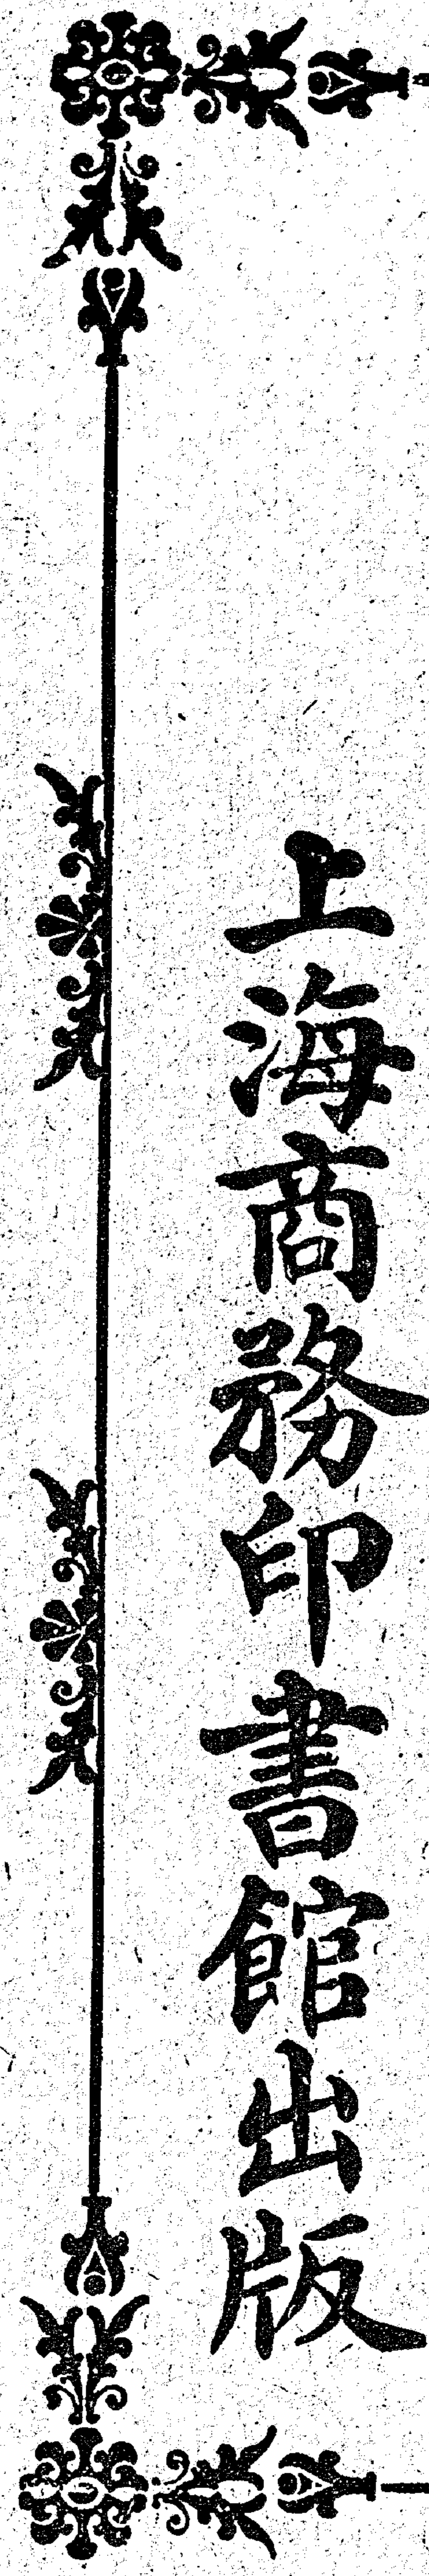 上海商務印書館出版